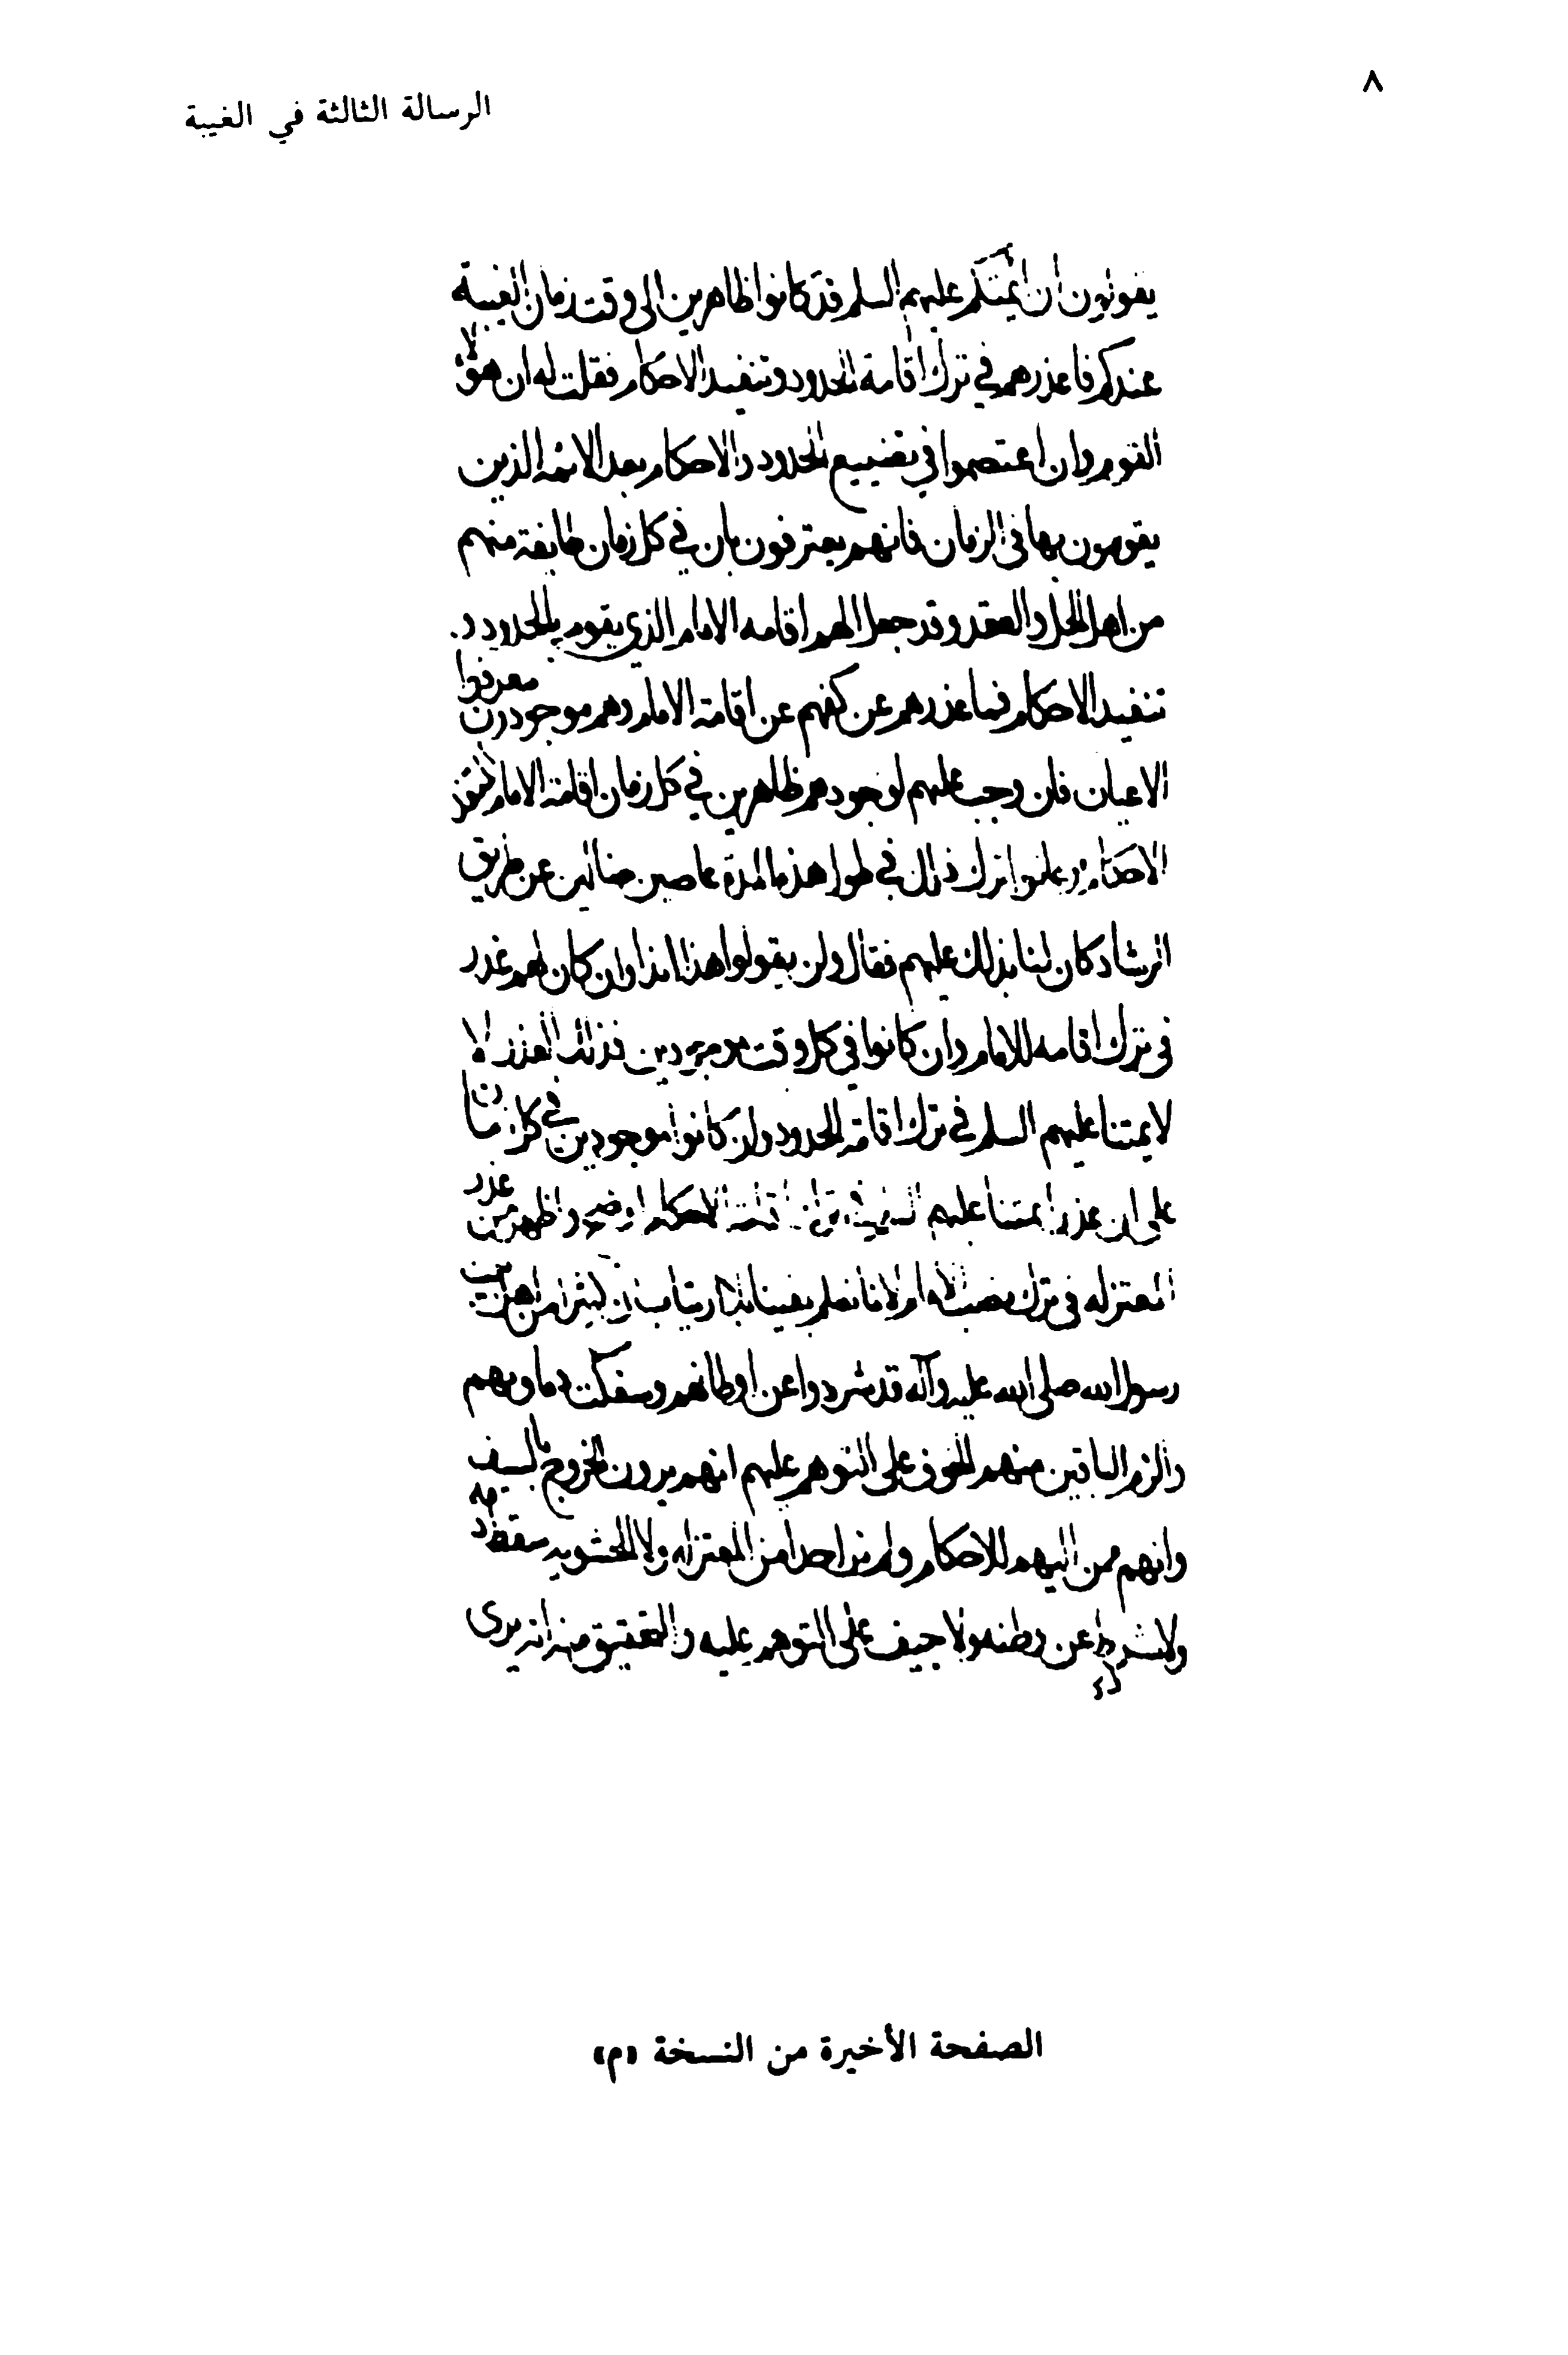 ٨
الرسالة الثالثة في الغيبة
يقولون ان ائمتكم عليهم السلم قد كانوا ظاهرين الى وقت زمان الغيبة
عندكم فما عذرهم في ترك اقامة الحدود وتنفيد الاحكام فقلت له ان هؤلاء
القوم وان اعتصموا في تضييع الحدود والاحكام بعد الائمه الذين
يقومون بها في الزمان فانهم يعترفون بان في كل زمان طايفة منهم
من اهل الحل والعقد وقد جعل الهم اقامه الامام الذي يقوم بالحدود و
تنفيد الاحكام فما عذرهم عن كفهم عن اقامة الامام وهم موجودون معرفوا
الاعيان فان وجب عليهم لوجودهم ظاهرين في كل زمان اقامة الامام لتنفيذ
الاحكام وعلنوا ترك ذلك في طول هذه المدة عاصين ضالين عن طريق
الرشاد كان لنا بذلك عليهم فقال ولن يقولوا هذا ابدا وان كان لهم عذر
في ترك اقامه الامام وان كانوا في كل وقت موجودين فذلك العذر
لائمتنا عليهم السلم في ترك اقامة الحدود وان كانوا موجودين في كل زمان
على ان عذر ائمتنا عليهم السلم في ترك اقامة الاحكام اوضح واظهر من عذر
المعتزله في ترك نصب الامام لانا نعلم يقينا بلا ارتياب ان كثيرا من اهل بيت
رسول الله صلى الله عليه وآله قد شردوا عن اوطانهم وسفكت دماويهم
والزم الباقين منهم الخوف على التوهم عليهم انهم يرون الخروج بالسيف
وانهم ممن اليهم الاحكام ولم نر احدا من المعتزله ولا الحشويه سفك دمه
ولا شرد عن وطنه ولا خيف على التوهم عليه والتحقيق منه انه يرى
الصفحة الأخيرة من النسخة «م»